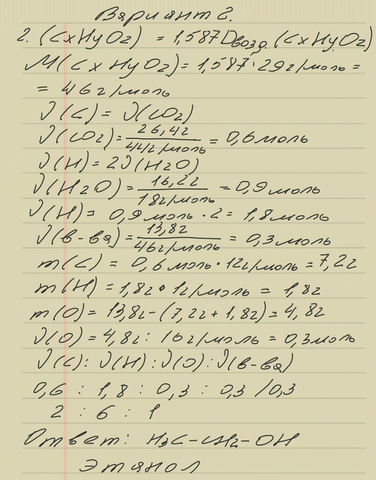 Вариант 2.
2. (CxHyO2) = 1,587 Dвозд. (CxHyO2)
M(CxHyO2) = 1,587 · 29г/моль =
= 46г/моль
ν(C) = ν(CO2)
ν(CO2) = 26,4г / 44г/моль = 0,6моль
ν(H) = 2ν(H2O)
ν(H2O) = 16,2г / 18г/моль = 0,9моль
ν(H) = 0,9моль · 2 = 1,8моль
ν(в-ва) = 13,8г / 46г/моль = 0,3моль
m(C) = 0,6моль · 12г/моль = 7,2г
m(H) = 1,8г · 1г/моль = 1,8г
m(O) = 13,8г - (7,2г + 1,8г) = 4,8г
ν(O) = 4,8г : 16г/моль = 0,3моль
ν(C) : ν(H) : ν(O) : ν(в-ва)
0,6 : 1,8 : 0,3 : 0,3 /0,3
2 : 6 : 1
Ответ: H3C-CH2-OH
Этанол